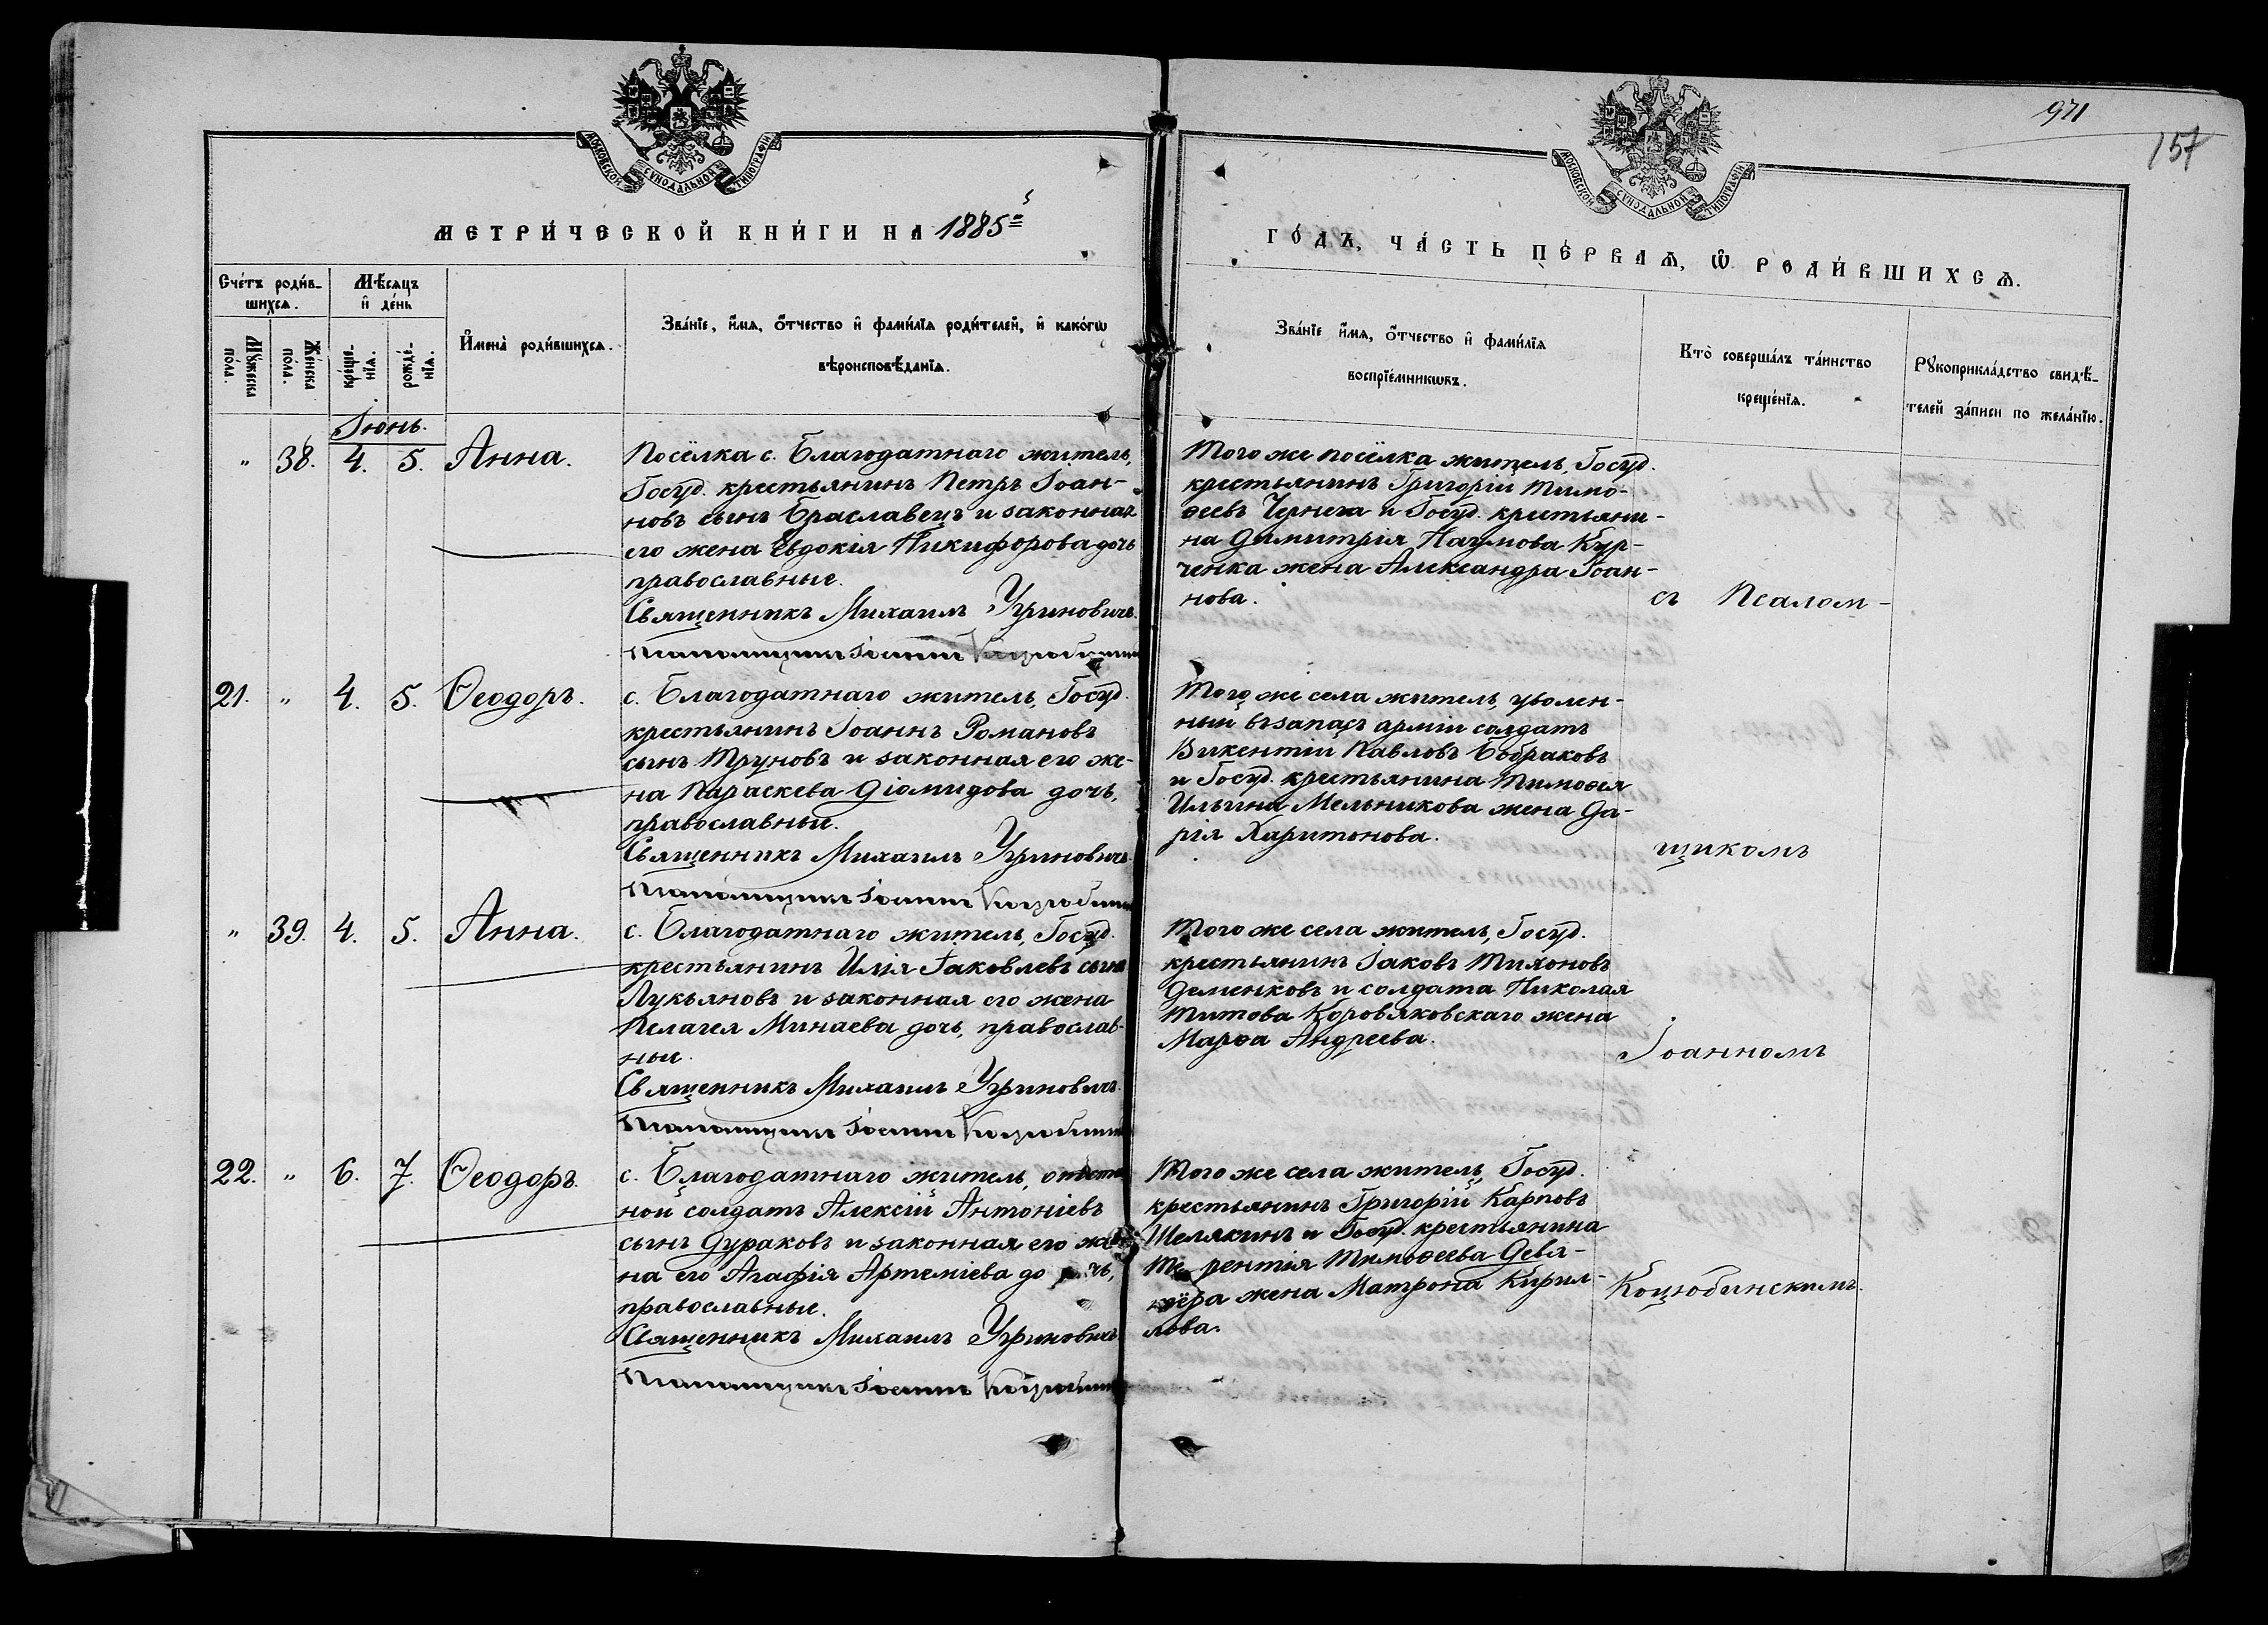 971
157
МОСКОВСКОЙ СѴНОДАЛЬНОЙ ТИПОГРАФІИ
МОСКОВСКОЙ СѴНОДАЛЬНОЙ ТИПОГРАФІИ
МЕТРИ́ЧЕСКОЙ КНИ́ГИ НА 1885й
ГО́ДЪ, ЧА́СТЬ ПЕ́РВАѦ, Ѡ҆ РОДИ́ВШИХСѦ.
Сче́тъ роди́в-
шихсѧ.
Мꙋ́жеска пола.
Же́нска пола.
Мѣ́сѧцъ
и҆ де́нь
креще́-
нїѧ.
рожде́-
нїѧ.
И҆мена̀ роди́вшихсѧ.
Зва́нїе, и҆́мѧ, ѻ҆́тчество и҆ фами́лїѧ роди́телей, и҆ како́гѡ
вѣроисповѣ́данїѧ.
Зва́нїе и҆́мѧ, ѻ҆́тчество и҆ фами́лїѧ
воспрїе́мникѡвъ.
Кто̀ соверша́лъ та́инство
креще́нїѧ.
Рꙋкоприкла́дство свидѣ́-
телей за́писи по жела́нїю.
Іюнь.
" 38. 4. 5. Анна.
Посёлка с. Благодатнаго житель,
Госуд. крестьянинъ Петръ Іоан-
новъ сынъ Браславецъ и законная
его жена Евдокія Никифорова дочь
православные.
Священникъ Михаилъ Угриновичъ.
Псаломщикъ Іоаннъ Коцюбинскій
Того же посёлка житель, Госуд.
крестьянинъ Григорій Тимо-
ѳеевъ Чернега и Госуд. крестьяни-
на Димитрія Наумова Кур-
ченка жена Александра Іоан-
нова.
съ Псалом-
21. " 4. 5. Ѳеодоръ.
с. Благодатнаго житель, Госуд.
крестьянинъ Іоаннъ Романовъ
сынъ Труновъ и законная его же-
на Параскева Діомидова дочь,
православные.
Священникъ Михаилъ Угриновичъ.
Псаломщикъ Іоаннъ Коцюбинскій
Того же села житель, уволен-
ный въ запасъ арміи солдатъ
Викентій Павловъ Бобраковъ
и Госуд. крестьянина Тимоѳея
Ильина Мельникова жена Да-
рія Харитонова.
щикомъ
" 39. 4. 5. Анна.
с. Благодатнаго житель, Госуд.
крестьянинъ Илія Іаковлевъ сынъ
Лукьяновъ и законная его жена
Пелагея Минаева дочь, православ-
ные.
Священникъ Михаилъ Угриновичъ.
Псаломщикъ Іоаннъ Коцюбинскій
Того же села житель, Госуд.
крестьянинъ Іаковъ Тихоновъ
Деменковъ и солдата Николая
Титова Коровяковскаго жена
Марѳа Андреева.
Іоанномъ
22. " 6. 7. Ѳеодоръ.
с. Благодатнаго житель,
ной солдатъ Алексій Антоніевъ
сынъ Дураковъ и законная его же-
на его Агафія Артеміева до чь,
православные.
Священникъ Михаилъ Угриновичъ
Псаломщикъ Іоаннъ Коцюбинскій
Того же села житель, Госуд.
крестьянинъ Григорій Карповъ
Шелякинъ и Госуд. крестьянина
Те рентія Тимоѳеева Девя-
жена Матрона Кирил-
лова.
Коцюбинскимъ.